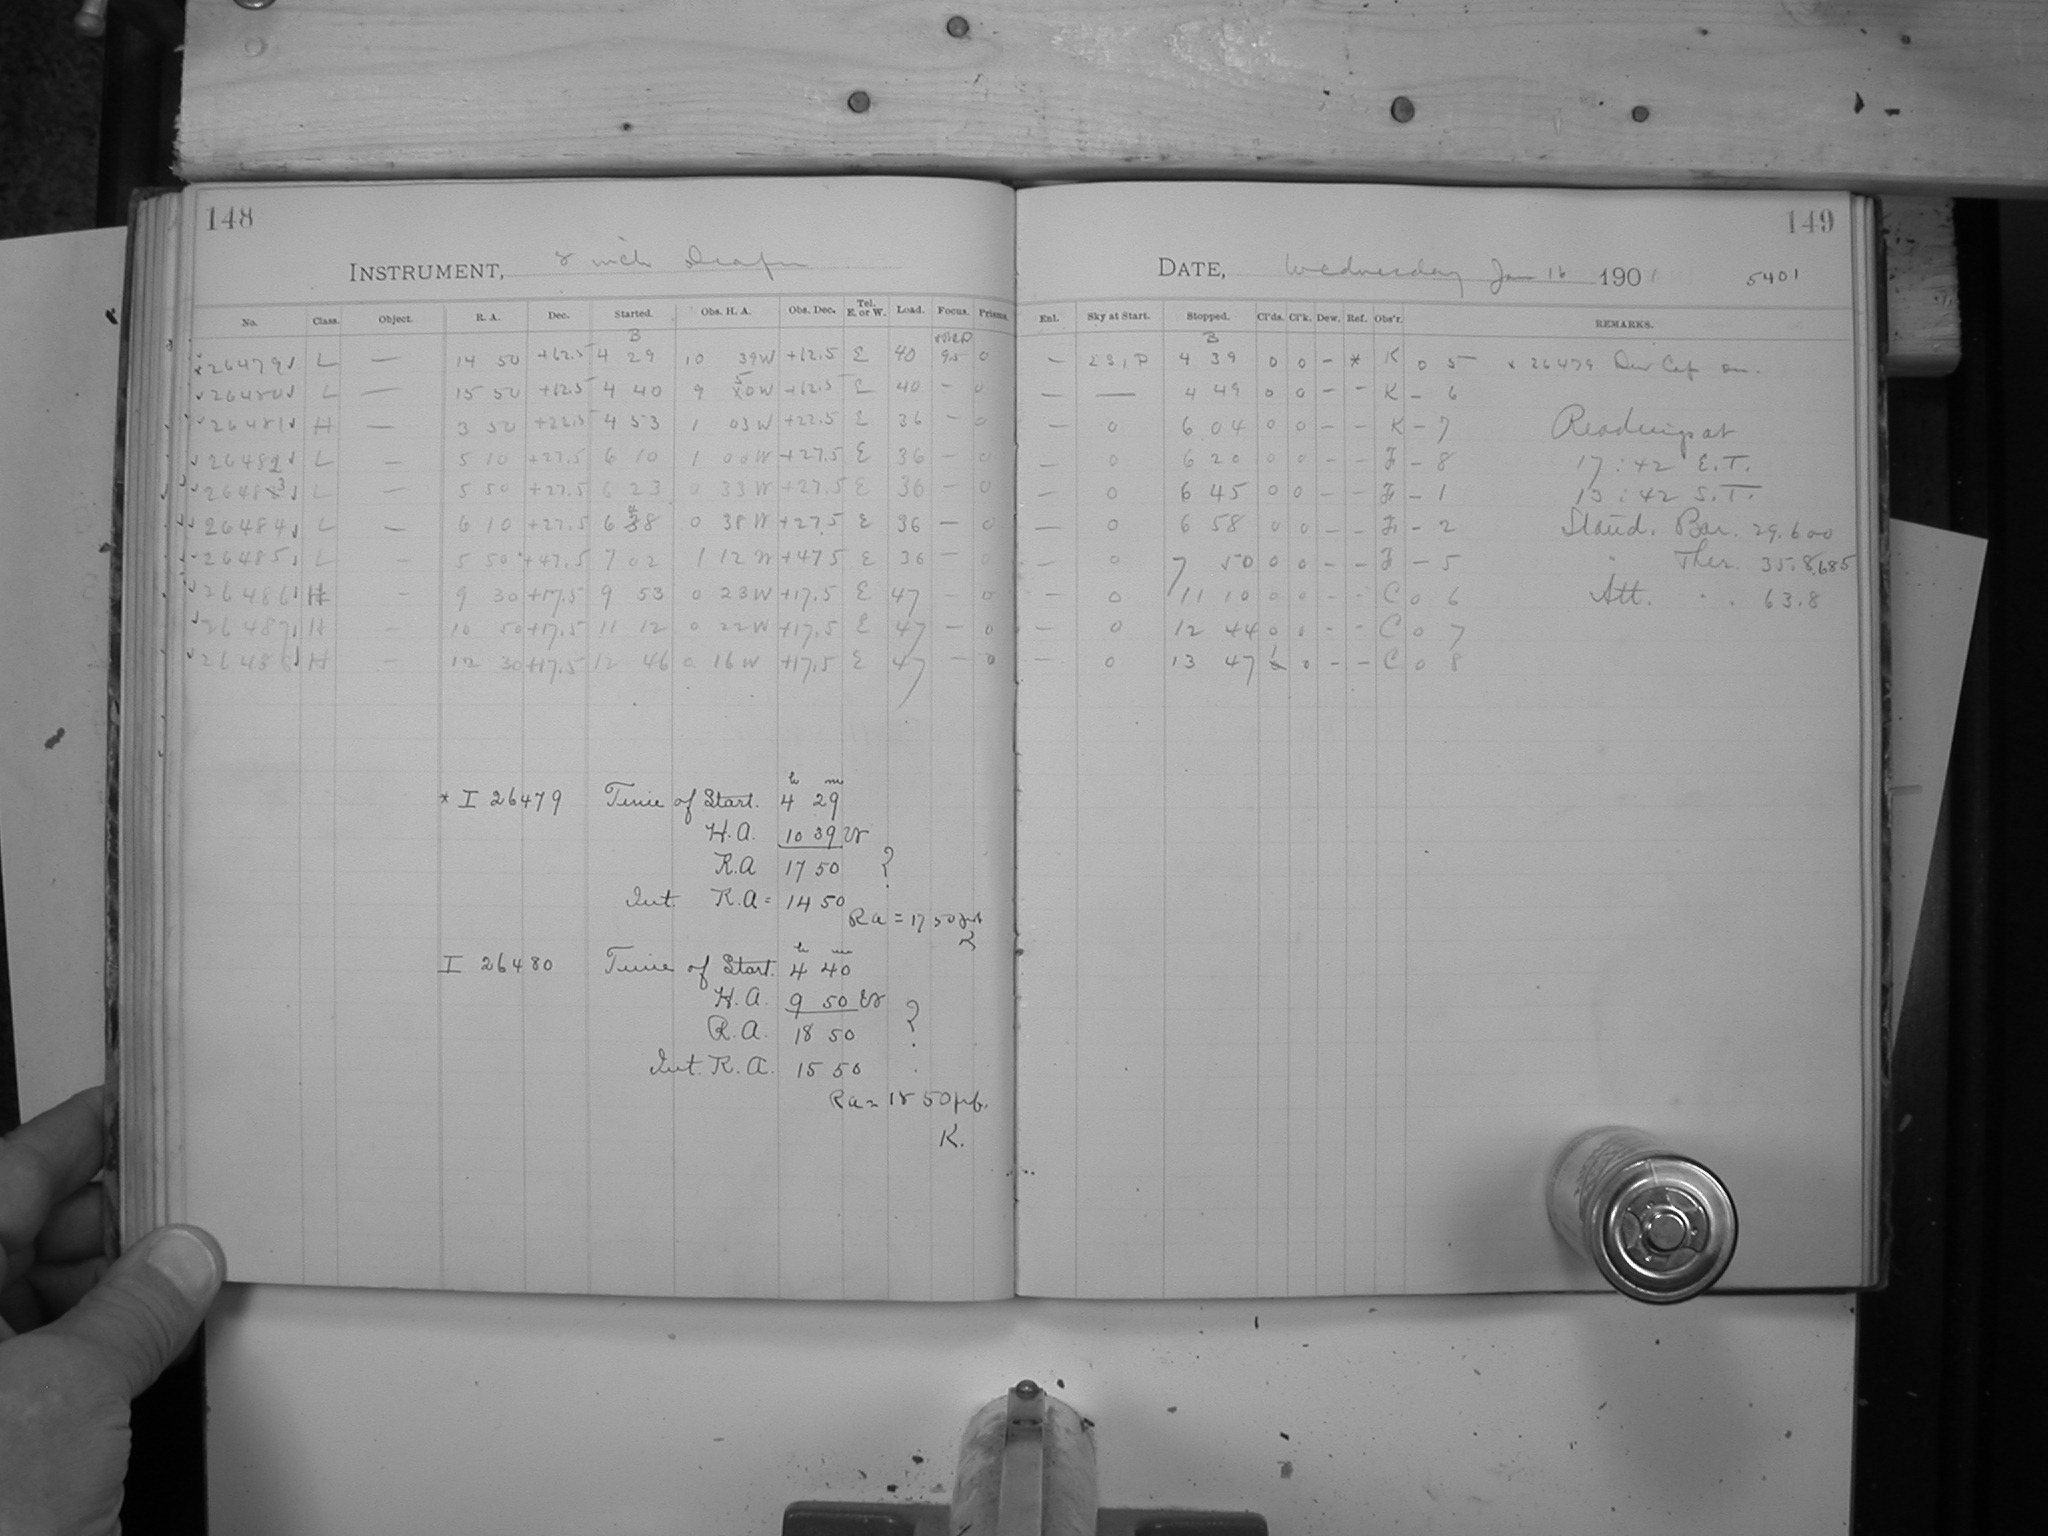 148
INSTRUMENT, 8 inch Draper
No. Class. Object. R. A. Dec. Started. Obs. H. A. Obs. Dec. Tel. E. or W. Load. Focus. Prisms.
B
26479 L — 14 50 +12.5 4 29 10 39W +12.5 E 40 9.5 0
26480 L — 15 50 +12.5 4 40 9 50W +12.5 E 40 – 0
26481 H — 3 50 +22.5 4 53 1 03W +22.5 E 36 – 0
26482 L — 5 10 +27.5 6 10 1 00W +27.5 E 36 – 0
26483 L — 5 50 +27.5 6 23 0 33W +27.5 E 36 – 0
26484 L — 6 10 +27.5 6 48 0 38W +27.5 E 36 – 0
26485 L – 5 50 +47.5 7 02 1 12W +47.5 E 36 – 0
26486 H – 9 30 +17.5 9 53 0 23W +17.5 E 47 – 0
26487 H – 10 50 +17.5 11 12 0 22W +17.5 E 47 – 0
26488 H – 12 30 +17.5 12 46 0 16W +17.5 E 47 – 0
h m
* I 26479 Time of Start. 4 29
H.A. 10 39 W
R.A 17 50 ?
Int. R.A = 14 50
Ra = 17 50
K
h m
I 26480 Time of Start. 4 40
H.A. 9 50 W
R.A. 18 50 ?
Int. R.A. 15 50
Ra = 18 50
K.
149
DATE, Wednesday Jan 16 1901 5401
Enl. Sky at Start. Stopped. Cl'ds. Cl'k. Dew. Ref. Obs'r. REMARKS.
B
– 4 39 0 0 – * K 0 5 x 26479 Dew Cap on.
– — 4 49 0 0 – – K – 6
– 0 6 04 0 0 – – K – 7 Readings at
– 0 6 20 0 0 – – F – 8 17 : 42 E.T.
– 0 6 45 0 0 – – F – 1 13 : 42 S.T.
– 0 6 58 0 0 – – F – 2 Stand. Bar. 29.600
– 0 7 50 0 0 – – F – 5 " Ther. 35.8 .685
– 0 11 10 0 0 – – C 0 6 Att. " . 63.8
– 0 12 44 0 0 – – C 0 7
– 0 13 47 1 0 – – C 0 8